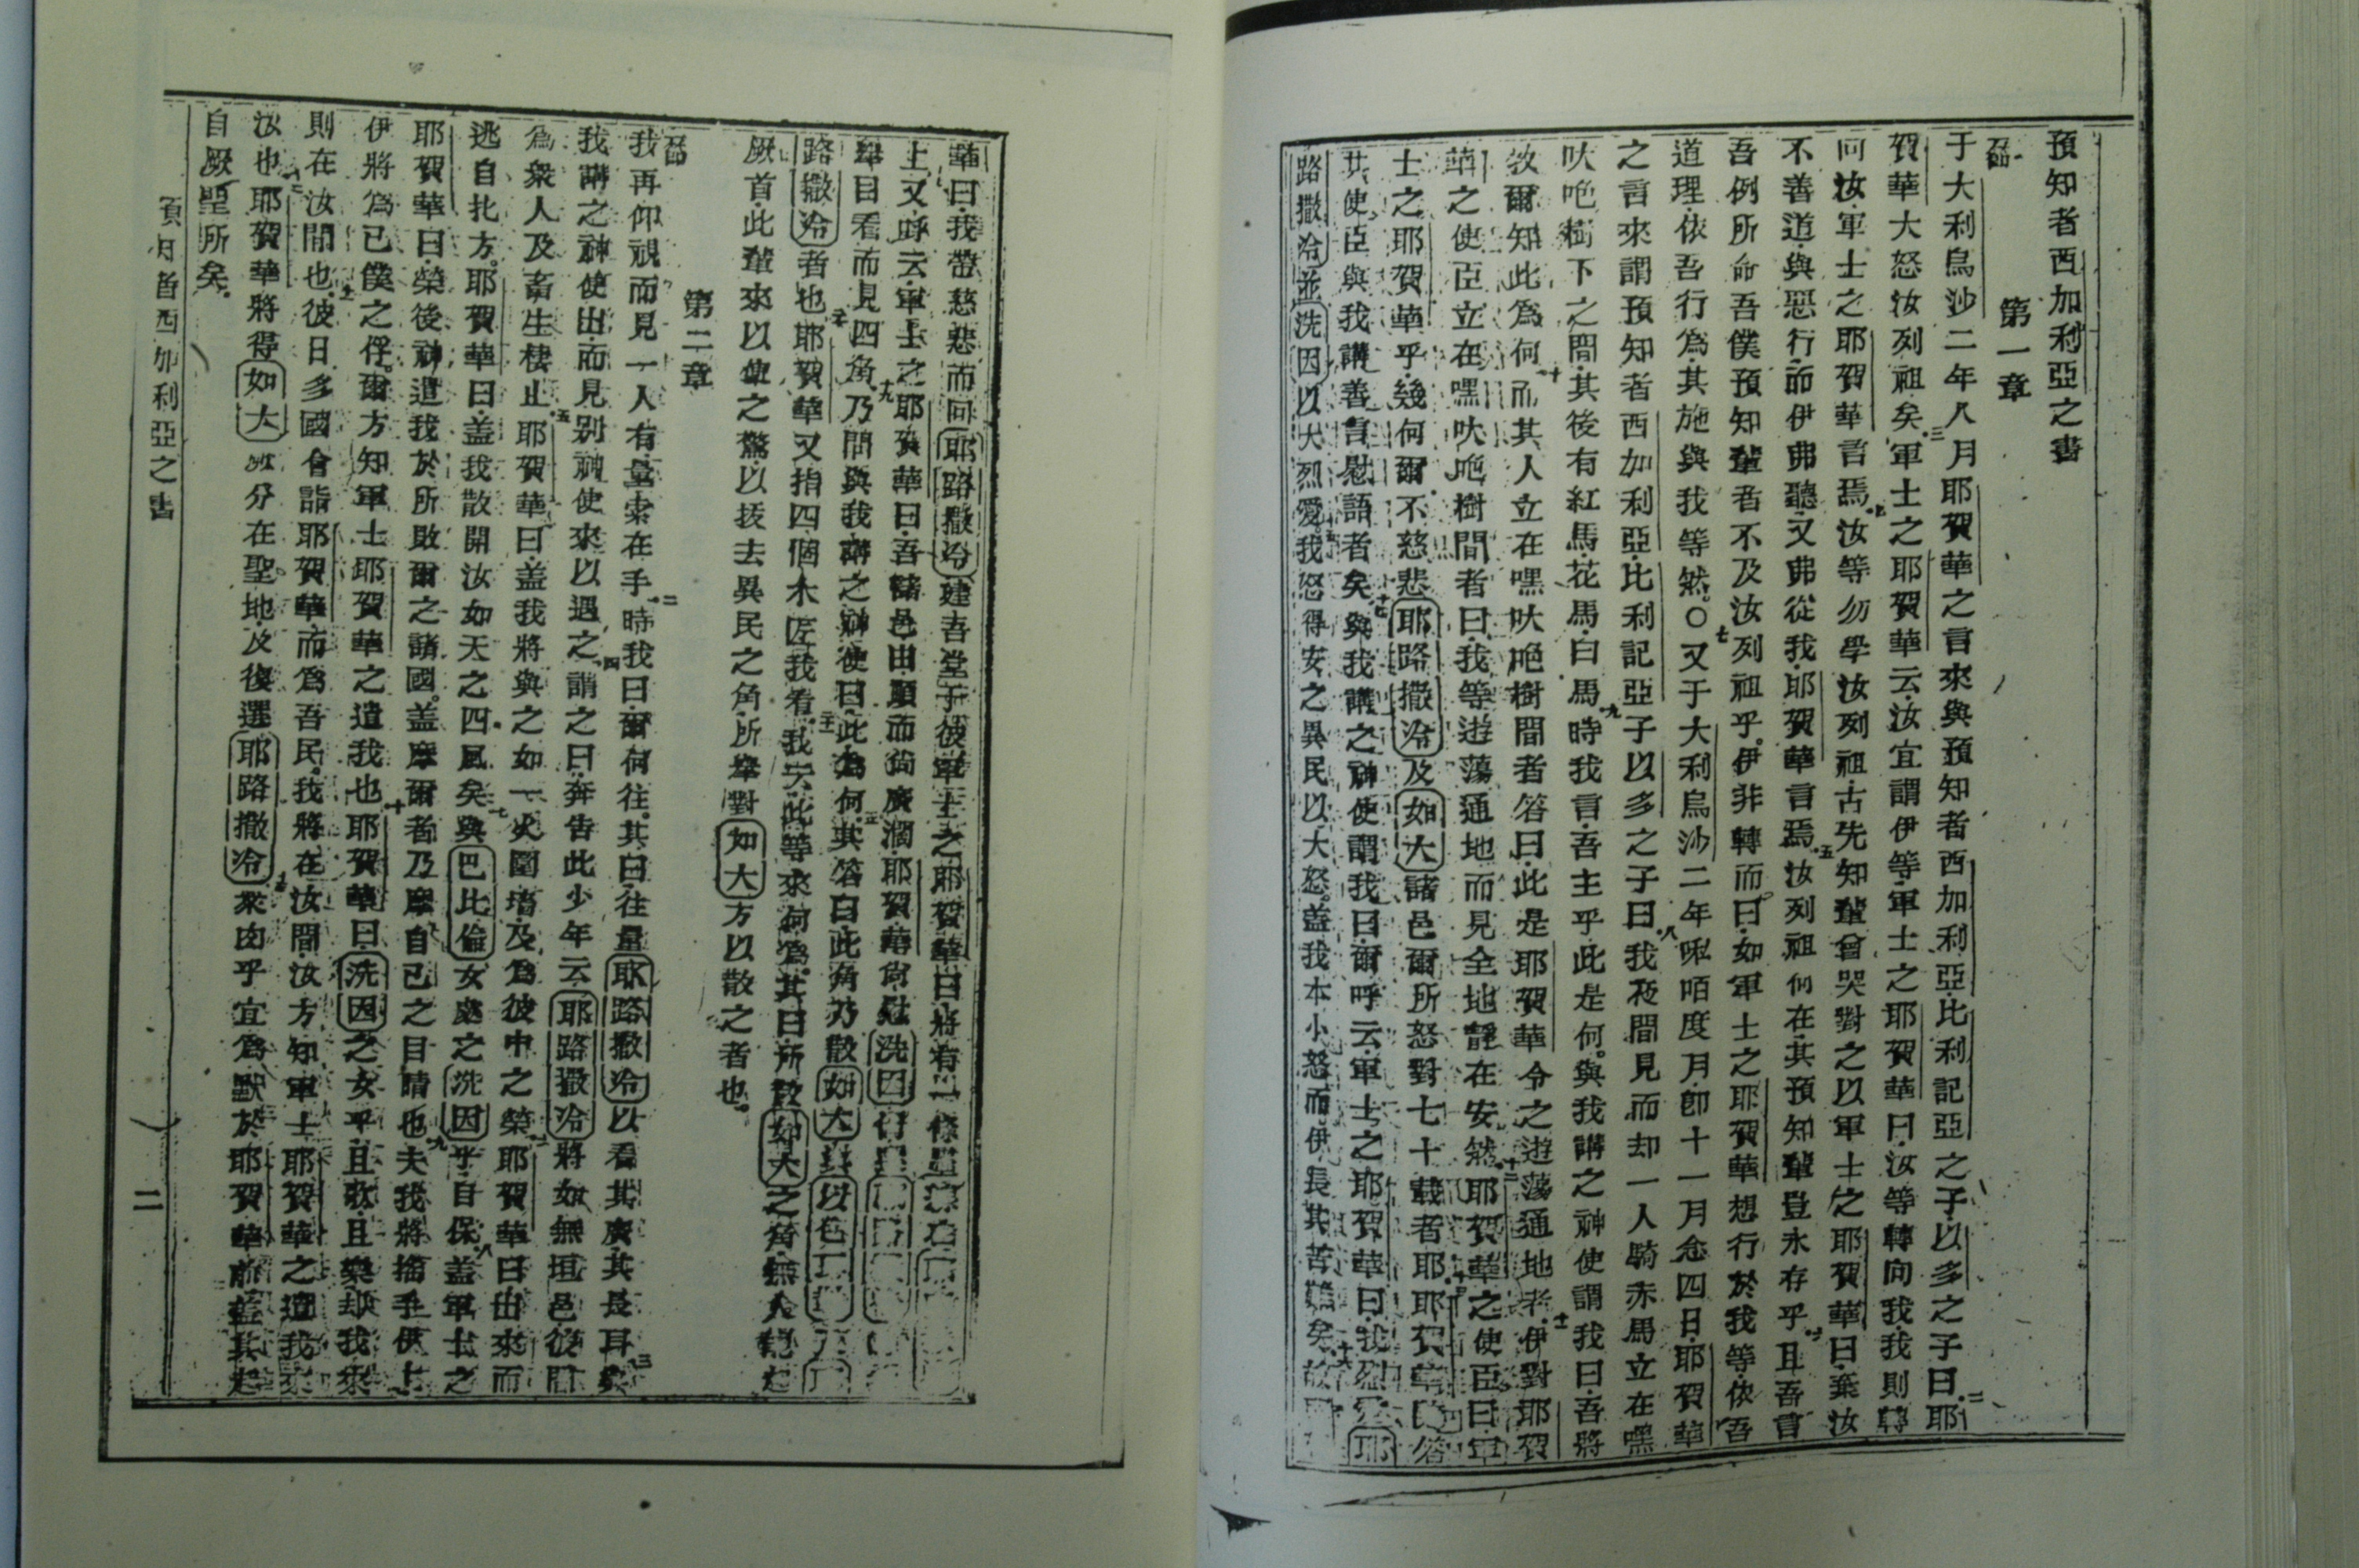 預知者西加利亞之書
第一章
于大利烏沙二年八月耶賀華之言來與預知者西加利亞比利記亞之子以多之子曰二耶
賀華大怒汝列祖矣三軍士之耶賀華云汝宜謂伊等軍士之耶賀華曰汝等轉向我我則轉
向汝軍士之耶賀華言焉四汝等勿學汝列祖古先知輩曾哭對之以軍士之耶賀華曰棄汝
不善道與惡行而伊弗聽又弗從我耶賀華言焉五汝列祖何在其預知輩豈永存乎六且吾言
吾例所命吾僕預知輩者不及汝列祖乎伊非轉而曰如軍士之耶賀華想行於我等依吾
道理依吾行為其施與我等然○七又于大利烏沙二年唎咟度月即十一月念四日耶賀華
之言來謂預知者西加利亞比利記亞子以多之子曰八我夜間見而却一人騎赤馬立在嘿
吠吔樹下之間其後有紅馬花馬白馬九時我言吾主乎此是何與我講之神使謂我曰吾將
教爾知此為何十而其人立在嘿吠吔樹間者答曰此是耶賀華令之遊蕩通地者十一伊對耶賀
華之使臣立在嘿吠吔樹間者曰我等遊蕩通地而見全地靜在安然十二耶賀華之使臣曰軍
士之耶賀華乎幾何爾不慈悲耶路撒冷及如大諸邑爾所怒對七十載者十三耶賀華答
其使臣與我講善言慰語者矣十四與我講之神使謂我曰爾呼云軍士之耶賀華曰我烈愛耶
路撒冷並洗因以大烈愛十五我怒得安之異民以大怒蓋我本小怒而伊長其苦難矣十六故耶賀
華曰我帶慈悲而回耶路撒冷建吾堂于彼軍士之耶賀華曰將有一條
十七又呼云軍士之耶賀華曰吾諸邑由順而尚廣濶耶賀華尚慰洗因
十八舉目看而見四角十九乃問與我講之神使曰此為何其答曰此角乃散如大以色
路撒冷者也二十耶賀華又指四個木匠我看二十一我云此等來何為其曰所散如大之角無人
厥首此輩來以使之驚以拔去異民之角所舉對如大方以散之者也
第二章
我再仰視而見一人有量索在手二時我曰爾何往其曰往量耶路撒冷以看其廣其長耳三與
我講之神使出而見別神使來以遇之四謂之曰奔告此少年云耶路撒冷將如無垣邑彼間
為衆人及畜生棲止五耶賀華曰蓋我將與之如一火圍墻及為彼中之榮六耶賀華曰出來而
逃自北方耶賀華曰蓋我散開汝如天之四風矣七與巴比倫女處之洗因乎自保八蓋軍士之
耶賀華曰榮後神遣我於所敗爾之諸國蓋摩爾者乃摩自己之目睛也九夫我將搖手伊上
伊將為已僕之俘爾方知軍士耶賀華之遣我也十耶賀華曰洗因之女乎且歌且樂却我來
則在汝間也十一彼日多國會詣耶賀華而為吾民我將在汝間汝方知軍士耶賀華之遣我來
汝也十二耶賀華將得如大分在聖地及復選耶路撒冷十三衆肉乎宜為默於耶賀華前蓋其起
自厥聖所矣
預知者西加利亞之書
二